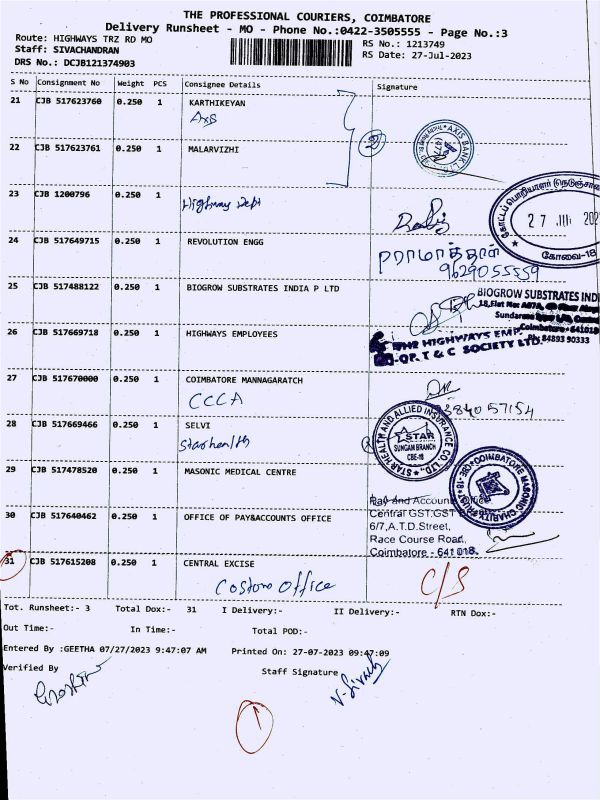 THE PROFESSIONAL COURIERS, COIMBATORE
Delivery Runsheet - MO - Phone No.:0422-3505555 - Page No.:3
Route: HIGHWAYS TRZ RD MO
RS No.: 1213749
Staff: SIVACHANDRAN
RS Date: 27-Jul-2023
DRS No.: DCJB121374903
S No Consignment No Weight PCS Consignee Details Signature
21 CJB 517623760 0.250 1 KARTHIKEYAN
Axis
22 CJB 517623761 0.250 1 MALARVIZHI
2
AXIS BANK
23 CJB 1200796 0.250 1
Highway Dept
27 JUL 202
கோவை-18
24 CJB 517649715 0.250 1 REVOLUTION ENGG
9629055559
25 CJB 517488122 0.250 1 BIOGROW SUBSTRATES INDIA P LTD
BIOGROW SUBSTRATES INDI
Coimbatore - 641018
Ph: 84893 90333
26 CJB 517669718 0.250 1 HIGHWAYS EMPLOYEES
THE HIGHWAYS EMP.
-OP. T & C SOCIETY LTD.
27 CJB 517670000 0.250 1 COIMBATORE MANNAGARATCH
CCCA
28 CJB 517669466 0.250 1 SELVI
Starhealth
STAR HEALTH AND ALLIED INSURANCE CO. LTD.,
STAR
SUNGAM BRANCH
CBE-18
29 CJB 517478520 0.250 1 MASONIC MEDICAL CENTRE
COIMBATORE MASONIC CHARITY TRUST
CBE-18
30 CJB 517640462 0.250 1 OFFICE OF PAY&ACCOUNTS OFFICE
Pay and Accounts Office
Central GST:GST
6/7,A.T.D.Street,
Race Course Road,
Coimbatore - 641 018.
31 CJB 517615208 0.250 1 CENTRAL EXCISE
Costom Office
C/S
Tot. Runsheet:- 3 Total Dox:- 31 I Delivery:- II Delivery:- RTN Dox:-
Out Time:- In Time:- Total POD:-
Entered By :GEETHA 07/27/2023 9:47:07 AM Printed On: 27-07-2023 09:47:09
Verified By Staff Signature